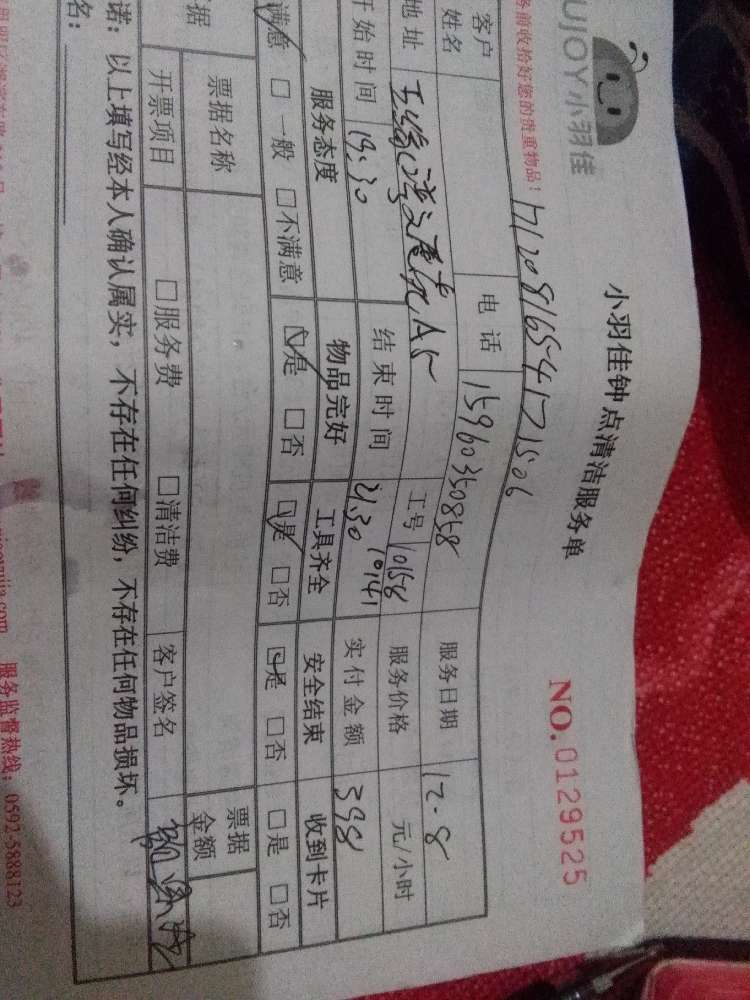 UJOY小羽佳
小羽佳钟点清洁服务单
NO.0129525
务前收拾好您的贵重物品！
171208165417506
客户姓名 电话 15960350858 服务日期 12.8
地址 A5 工号 10158 10141 服务价格 元/小时
开始时间 19:30 结束时间 21:30 实付金额 398
服务态度 物品完好 工具齐全 安全结束 收到卡片
满意 □一般 □不满意 □是 □否 □是 □否 □是 □否 □是 □否
据 票据名称 票据金额
开票项目 □服务费 □清洁费 客户签名
诺：以上填写经本人确认属实，不存在任何纠纷，不存在任何物品损坏。
名：
服务监督热线：0592-5888123